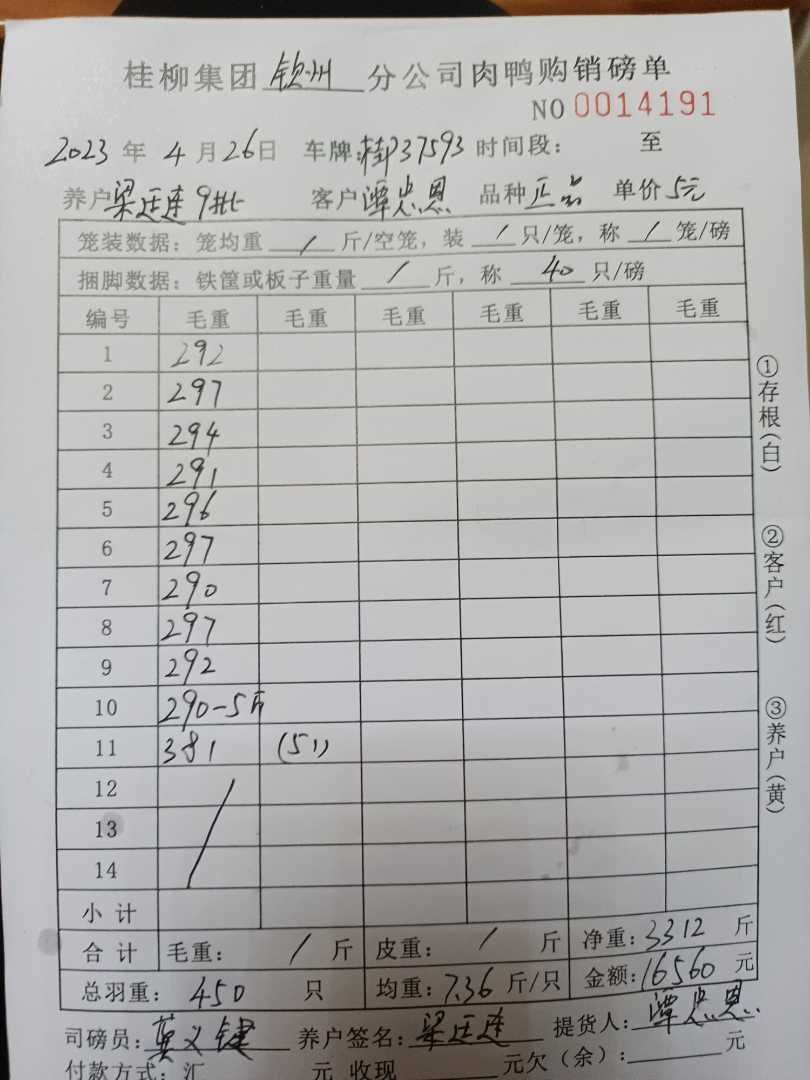 桂柳集团 钦州 分公司肉鸭购销磅单
NO 0014191
2023 年 4 月 26 日 车牌:桂 37593 时间段: 至
养户 梁廷连 9批 客户 谭忠恩 品种 正品 单价 5元
笼装数据: 笼均重 / 斤/空笼, 装 / 只/笼, 称 / 笼/磅
捆脚数据: 铁筐或板子重量 / 斤, 称 40 只/磅
编号 毛重 毛重 毛重 毛重 毛重 毛重
1 292
2 297
3 294
4 291
5 296
6 297
7 290
8 297
9 292
10 290-5斤
11 381 (51)
12
13
14
小计
合计 毛重: / 斤 皮重: / 斤 净重: 3312 斤
总羽重: 450 只 均重: 7.36 斤/只 金额: 16560 元
司磅员: 莫义键 养户签名: 梁廷连 提货人: 谭忠恩
付款方式: 汇 元 收现 元欠(余): 元
①存根(白)
②客户(红)
③养户(黄)